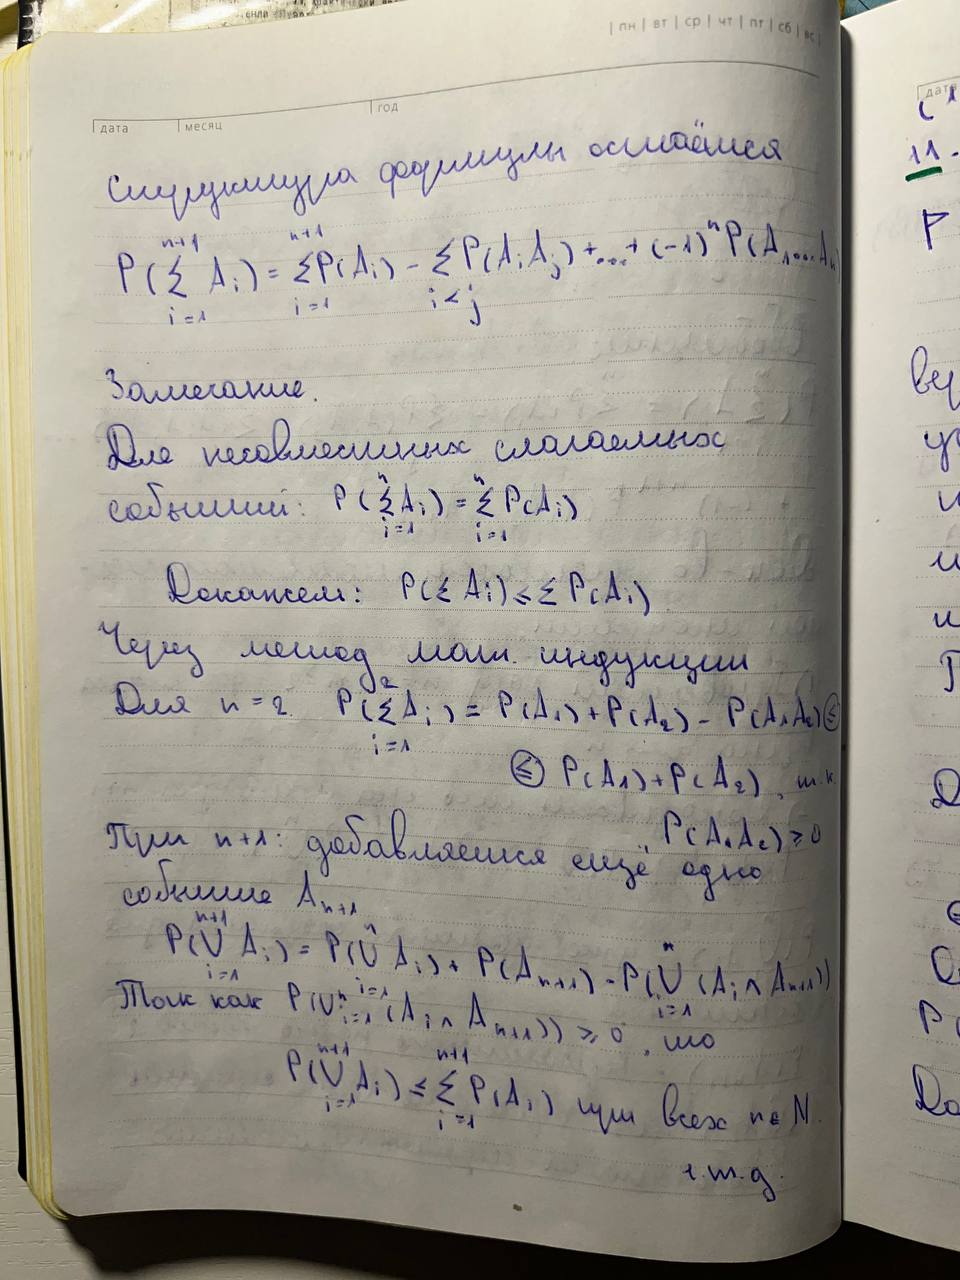 | пн | вт | ср | чт | пт | сб | вс |
дата | месяц | год
Структура формулы остаётся
P(∑_{i=1}^{n+1} A_i) = ∑_{i=1}^{n+1} P(A_i) - ∑_{i<j} P(A_i A_j) + ... + (-1)^n P(A_1...A_n)
Замечание.
Для несовместных слагаемых
событий: P(∑_{i=1}^{n} A_i) = ∑_{i=1}^{n} P(A_i)
Докажем: P(∑ A_i) ≤ ∑ P(A_i)
Через метод мат. индукции
Для n = 2 P(∑_{i=1}^{2} A_i) = P(A_1) + P(A_2) - P(A_1 A_2) ≤
≤ P(A_1) + P(A_2), т.к.
P(A_1 A_2) ≥ 0
При n+1: добавляется ещё одно
событие A_{n+1}
P(⋃_{i=1}^{n+1} A_i) = P(⋃_{i=1}^{n} A_i) + P(A_{n+1}) - P(⋃_{i=1}^{n} (A_i ∩ A_{n+1}))
Так как P(⋃_{i=1}^{n} (A_i ∩ A_{n+1})) ≥ 0, то
P(⋃_{i=1}^{n+1} A_i) ≤ ∑_{i=1}^{n+1} P(A_i) при всех n ∈ N.
ч.т.д.
дата
11.